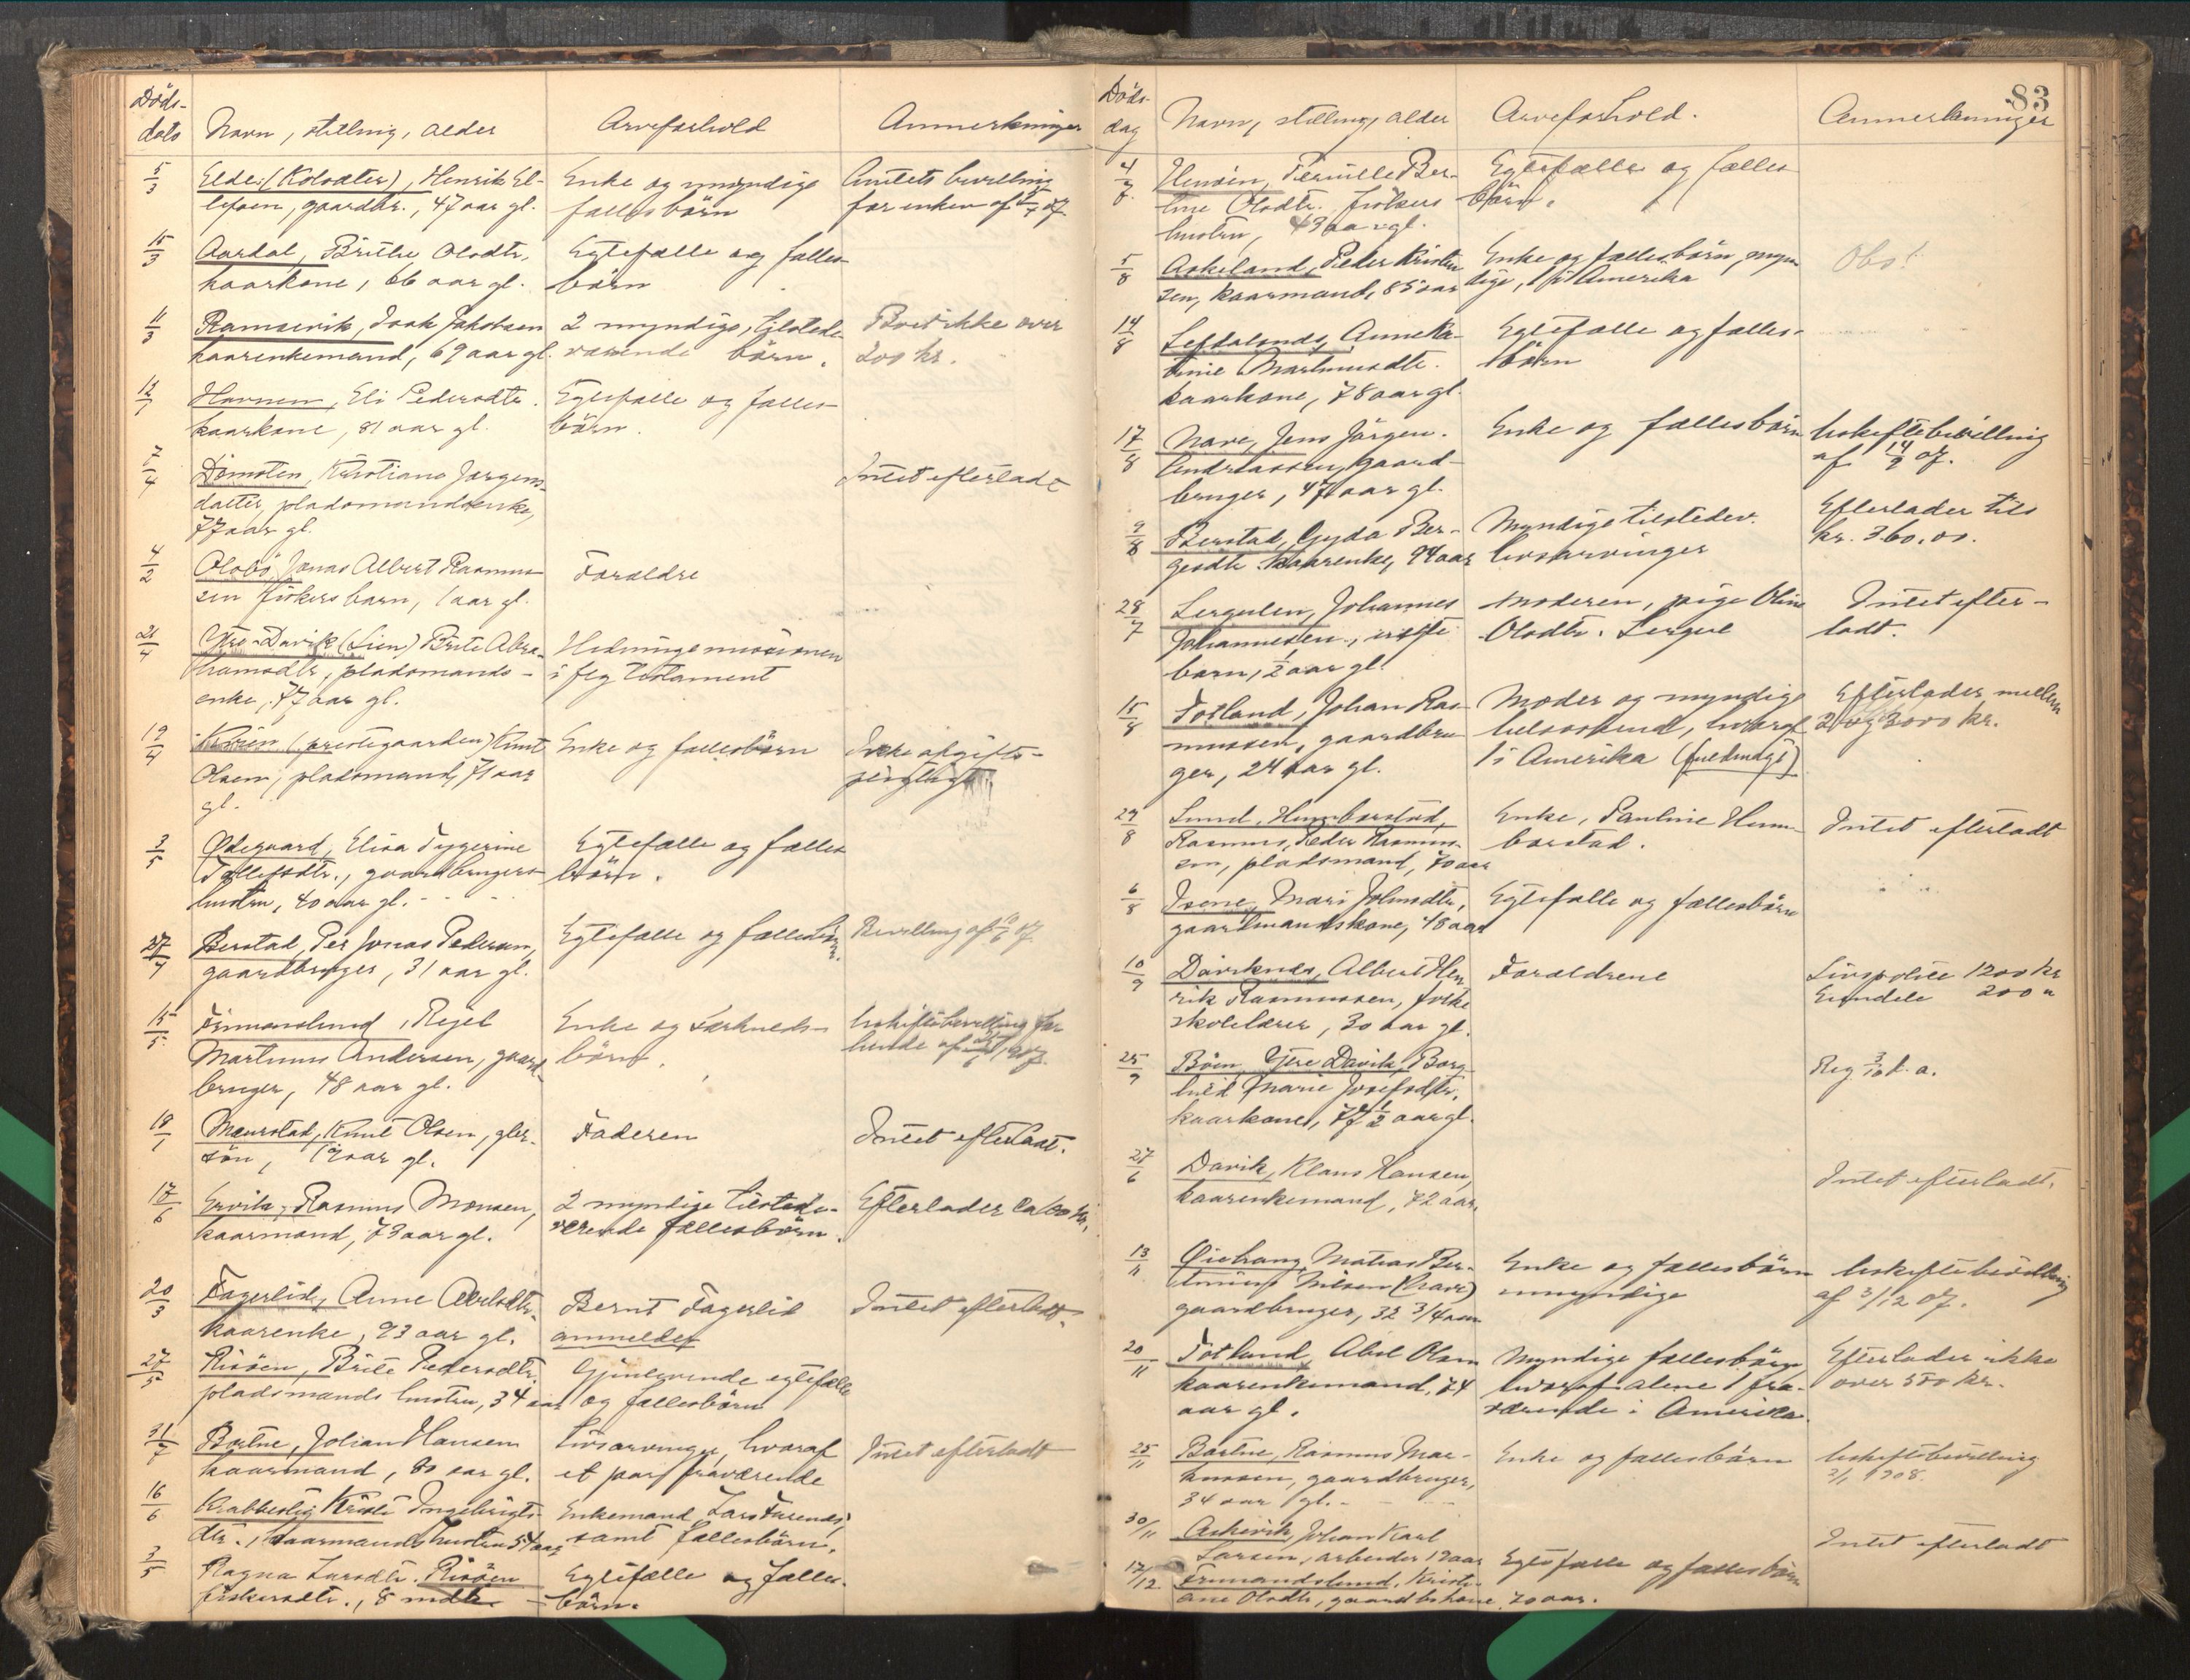 Döds-
dato Navn, stilling, alder Arveforhold Anmerkninger
5/3 Elde (Kolsæter), Henrik El-
lefsen, gaardbr., 47 aar gl.
Enke og myndige
fællesbörn
Amtets bevilling
for enken af
15/3 Aardal, Brithe Olsdtr.
kaarkone, 66 aar gl.
Egtefælle og fælles-
börn
11/3 Ramsevik, Isak Jakobsen
kaarenkemand, 69 aar gl.
2 myndige, tilstede-
værende börn.
Boet ikke over
200 kr.
12/1 Havnen, Eli Pedersdtr.
kaarkone, 81 aar gl.
Egtefælle og fælles-
börn.
7/4 Domsten, Kristiane Jørgens-
datter, pladsmandsenke,
77 aar gl.
Intet efterladt
4/2 Olsbö, Jonas Albert Rasmus-
sen fiskers barn, 1 aar gl.
Forældre
21/4 Ytre-Davik (Lien) Brite Abra-
hamsdtr, pladsmands-
enke, 77 aar gl.
Hedningemissionen
i flg testament
19/4 (prestegaarden) Knut
Olsen, pladsmand, 71 aar
gl.
Enke og fællesbörn
Ikke afgifts-
pligtigt.
3/5 Ødegaard, Elisa Tygerine
Tollefsdtr., gaardbrugers-
hustru, 40 aar gl.
Egtefælle og fælles
börn.
27/4 Berstad, Per Jonas Pedersen,
gaardbruger, 31 aar gl.
Egtefælle og fællesbörn
Bevilling af 10/6 07
15/5 Firmanslund, Rejel
Martinus Andersen, gaard-
bruger, 48 aar gl.
Enke og Særkuels-
börn.
Uskiftebevilling for
1907.
18/1 Maurstad, Knut Olsen, gbr.
sön, 19 aar gl.
Faderen
Intet efterladt.
17/6 Ervik, Rasmus Monsen,
kaarmand, 73 aar gl.
2 myndige tilstede-
værende fællesbörn.
Efterlader ca 100 kr.
20/3 Fagerlid, Anne Abelsdtr.
kaarenke, 93 aar gl.
Bernt Fagerlid
anmelder
Intet efterladt.
27/5 Risöen, Brite Pedersdtr.
pladsmands hustru, 34 aar
Gjenlevende egtefælle
og fællesbörn
31/7 Bortne, Johan Hansen
kaarmand, 80 aar gl.
Livsarvinger, hvoraf
et par fraværende
Intet efterladt
16/6 Krabbestig Kristi Ingebrigts-
dtr., kaarmandshustru 54 aar
Enkemand Lars
samt fællesbörn.
3/5 Ragna Larsdtr. Risöen
fiskersdtr., 8 mdr.
Egtefælle og fælles-
börn.
83
Döds-
dag Navn, stilling, alder Arveforhold. Anmerkninger
4/7 Henöen, Pernille Ber-
tine Olsdtr. fiskers
hustru, 43 aar gl.
Egtefælle og fælles
börn.
5/8 Askeland, Peder Kristen-
sen, kaarmand, 85 aar
Enke og fællesbörn, myn-
dige, 1 i Amerika
Obs!
14/8 Lefdalsnds, Anne Ka-
trine Martinusdtr.
kaarkone, 78 aar gl.
Egtefælle og fælles-
börn
17/8 Nave, Jens Jörgen
Andreassen, gaard-
bruger, 47 aar gl.
Enke og fællesbörn
Uskiftebevilling
af 14/9 07.
9/8 Berstad, Gyda Ber-
gesdtr kaarenke, 94 aar
Myndige tilstedev.
livsarvinger
Efterlader tils
kr. 360,00.
28/7 Lergulen, Johannes
Johannessen, uegte
barn, 1/2 aar gl.
Moderen, pige Oline
Olsdtr. Lergul
Intet efter-
ladt.
15/8 Totland, Johan Ras-
mussen, gaardbru-
ger, 24 aar gl.
Moder og myndige
helsösken, hvoraf
1 i Amerika (fuldmagt)
Efterlader mellem
2 og 3000 kr.
29/8 Lund, Hunborstad,
Rasmus Peder Rasmus-
sen, pladsmand, 70 aar
Enke, Pauline Hun-
borstad.
Intet efterladt
6/8 Isene, Mari Johnsdtr.,
gaardmandskone, 48 aar
Egtefælle og fællesbörn
10/9 Daviknes, Albert Hen-
rik Rasmussen, folke
skolelærer, 30 aar gl.
Forældrene
Livspolice 1200 kr
Eiendele 200 "
25/9 Böen, Ytre Davik, Borg-
hild Marie Josefsdtr.,
kaarkone, 77 1/2 aar gl.
Reg 3/10 d. a.
27/6 Davik, Klaus Hansen,
kaarenkemand, 72 aar
Intet efterladt.
13/11 Øiehaug, Matias Ber-
Nilsen (Nave)
gaardbruger, 32 3/4 aar
Enke og fællesbörn
umyndige
Uskiftebevilling
af 3/12 07.
20/11 Totland, Abel Olsen
kaarenkemand, 74
aar gl.
Myndige fællesbörn
hvoraf alene 1 fra-
værende i Amerika.
Efterlader ikke
over 500 kr.
25/11 Bortne, Rasmus Mar-
kussen, gaardbruger,
34 aar gl.
Enke og fællesbörn
Uskiftebevilling
3/1 1908.
30/11 Askevik, Johan Karl
Larsen, arbeider 19 aar
Intet efterladt
17/12 Firmandslund, Kristi-
ane Olsdtr, gaardbr.kone, 70 aar.
Egtefælle og fællesbörn